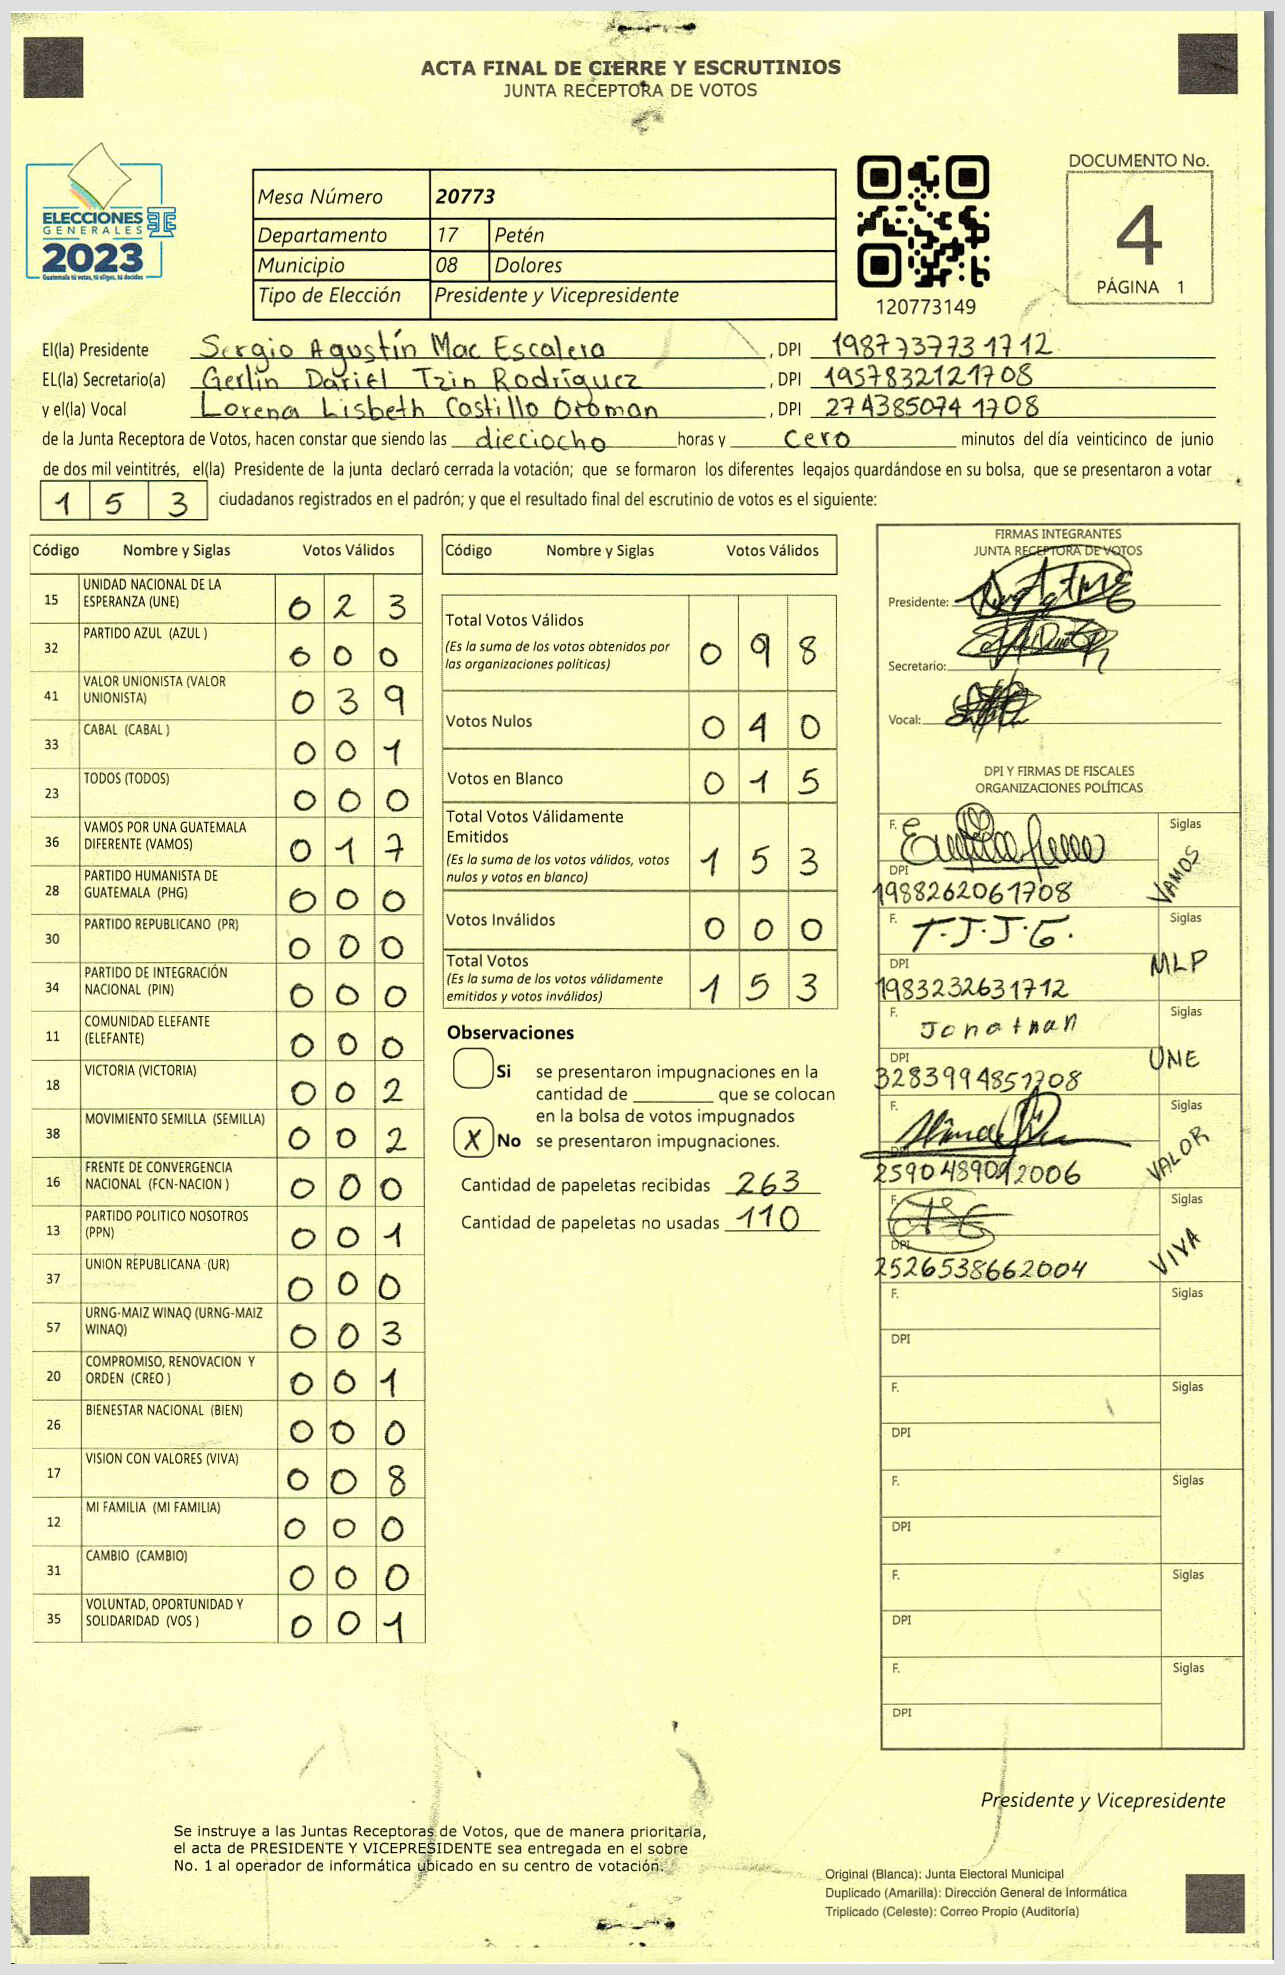 ACTA FINAL DE CIERRE Y ESCRUTINIOS
JUNTA RECEPTORA DE VOTOS
ELECCIONES
GENERALES
2023
Guatemala tú votas, tú eliges, tú decides
Mesa Número 20773
Departamento 17 Petén
Municipio 08 Dolores
Tipo de Elección Presidente y Vicepresidente
120773149
DOCUMENTO No.
4
PÁGINA 1
El(la) Presidente Sergio Agustín Mac Escalera, DPI 1987737731712
EL(la) Secretario(a) Gerlin Dariel Tzin Rodríguez, DPI 1957832121708
y el(la) Vocal Lorena Lisbeth Castillo Oroman, DPI 2743850741708
de la Junta Receptora de Votos, hacen constar que siendo las dieciocho horas y cero minutos del día veinticinco de junio
de dos mil veintitrés, el(la) Presidente de la junta declaró cerrada la votación; que se formaron los diferentes legajos guardándose en su bolsa, que se presentaron a votar
153 ciudadanos registrados en el padrón; y que el resultado final del escrutinio de votos es el siguiente:
Código Nombre y Siglas Votos Válidos
15 UNIDAD NACIONAL DE LA ESPERANZA (UNE) 023
32 PARTIDO AZUL (AZUL ) 000
41 VALOR UNIONISTA (VALOR UNIONISTA) 039
33 CABAL (CABAL ) 001
23 TODOS (TODOS) 000
36 VAMOS POR UNA GUATEMALA DIFERENTE (VAMOS) 017
28 PARTIDO HUMANISTA DE GUATEMALA (PHG) 000
30 PARTIDO REPUBLICANO (PR) 000
34 PARTIDO DE INTEGRACIÓN NACIONAL (PIN) 000
11 COMUNIDAD ELEFANTE (ELEFANTE) 000
18 VICTORIA (VICTORIA) 002
38 MOVIMIENTO SEMILLA (SEMILLA) 002
16 FRENTE DE CONVERGENCIA NACIONAL (FCN-NACION ) 000
13 PARTIDO POLITICO NOSOTROS (PPN) 001
37 UNION REPUBLICANA (UR) 000
57 URNG-MAIZ WINAQ (URNG-MAIZ WINAQ) 003
20 COMPROMISO, RENOVACION Y ORDEN (CREO ) 001
26 BIENESTAR NACIONAL (BIEN) 000
17 VISION CON VALORES (VIVA) 008
12 MI FAMILIA (MI FAMILIA) 000
31 CAMBIO (CAMBIO) 000
35 VOLUNTAD, OPORTUNIDAD Y SOLIDARIDAD (VOS ) 001
Código Nombre y Siglas Votos Válidos
Total Votos Válidos 098
(Es la suma de los votos obtenidos por
las organizaciones políticas)
Votos Nulos 040
Votos en Blanco 015
Total Votos Válidamente
Emitidos 153
(Es la suma de los votos válidos, votos
nulos y votos en blanco)
Votos Inválidos 000
Total Votos 153
(Es la suma de los votos válidamente
emitidos y votos inválidos)
Observaciones
Si se presentaron impugnaciones en la
cantidad de ________ que se colocan
en la bolsa de votos impugnados
X No se presentaron impugnaciones.
Cantidad de papeletas recibidas 263
Cantidad de papeletas no usadas 110
FIRMAS INTEGRANTES
JUNTA RECEPTORA DE VOTOS
Presidente:
Secretario:
Vocal:
DPI Y FIRMAS DE FISCALES
ORGANIZACIONES POLÍTICAS
F. Siglas VAMOS
DPI 1988262061708
F. T.J.J.G. Siglas MLP
DPI 1983232631712
F. Jonathan Siglas UNE
DPI 3283994851708
F. Siglas VALOR
DPI 2590489092006
F. Siglas VIVA
DPI 2526538662004
F. Siglas
DPI
F. Siglas
DPI
F. Siglas
DPI
F. Siglas
DPI
F. Siglas
DPI
Presidente y Vicepresidente
Se instruye a las Juntas Receptoras de Votos, que de manera prioritaria,
el acta de PRESIDENTE Y VICEPRESIDENTE sea entregada en el sobre
No. 1 al operador de informática ubicado en su centro de votación.
Original (Blanca): Junta Electoral Municipal
Duplicado (Amarilla): Dirección General de Informática
Triplicado (Celeste): Correo Propio (Auditoría)